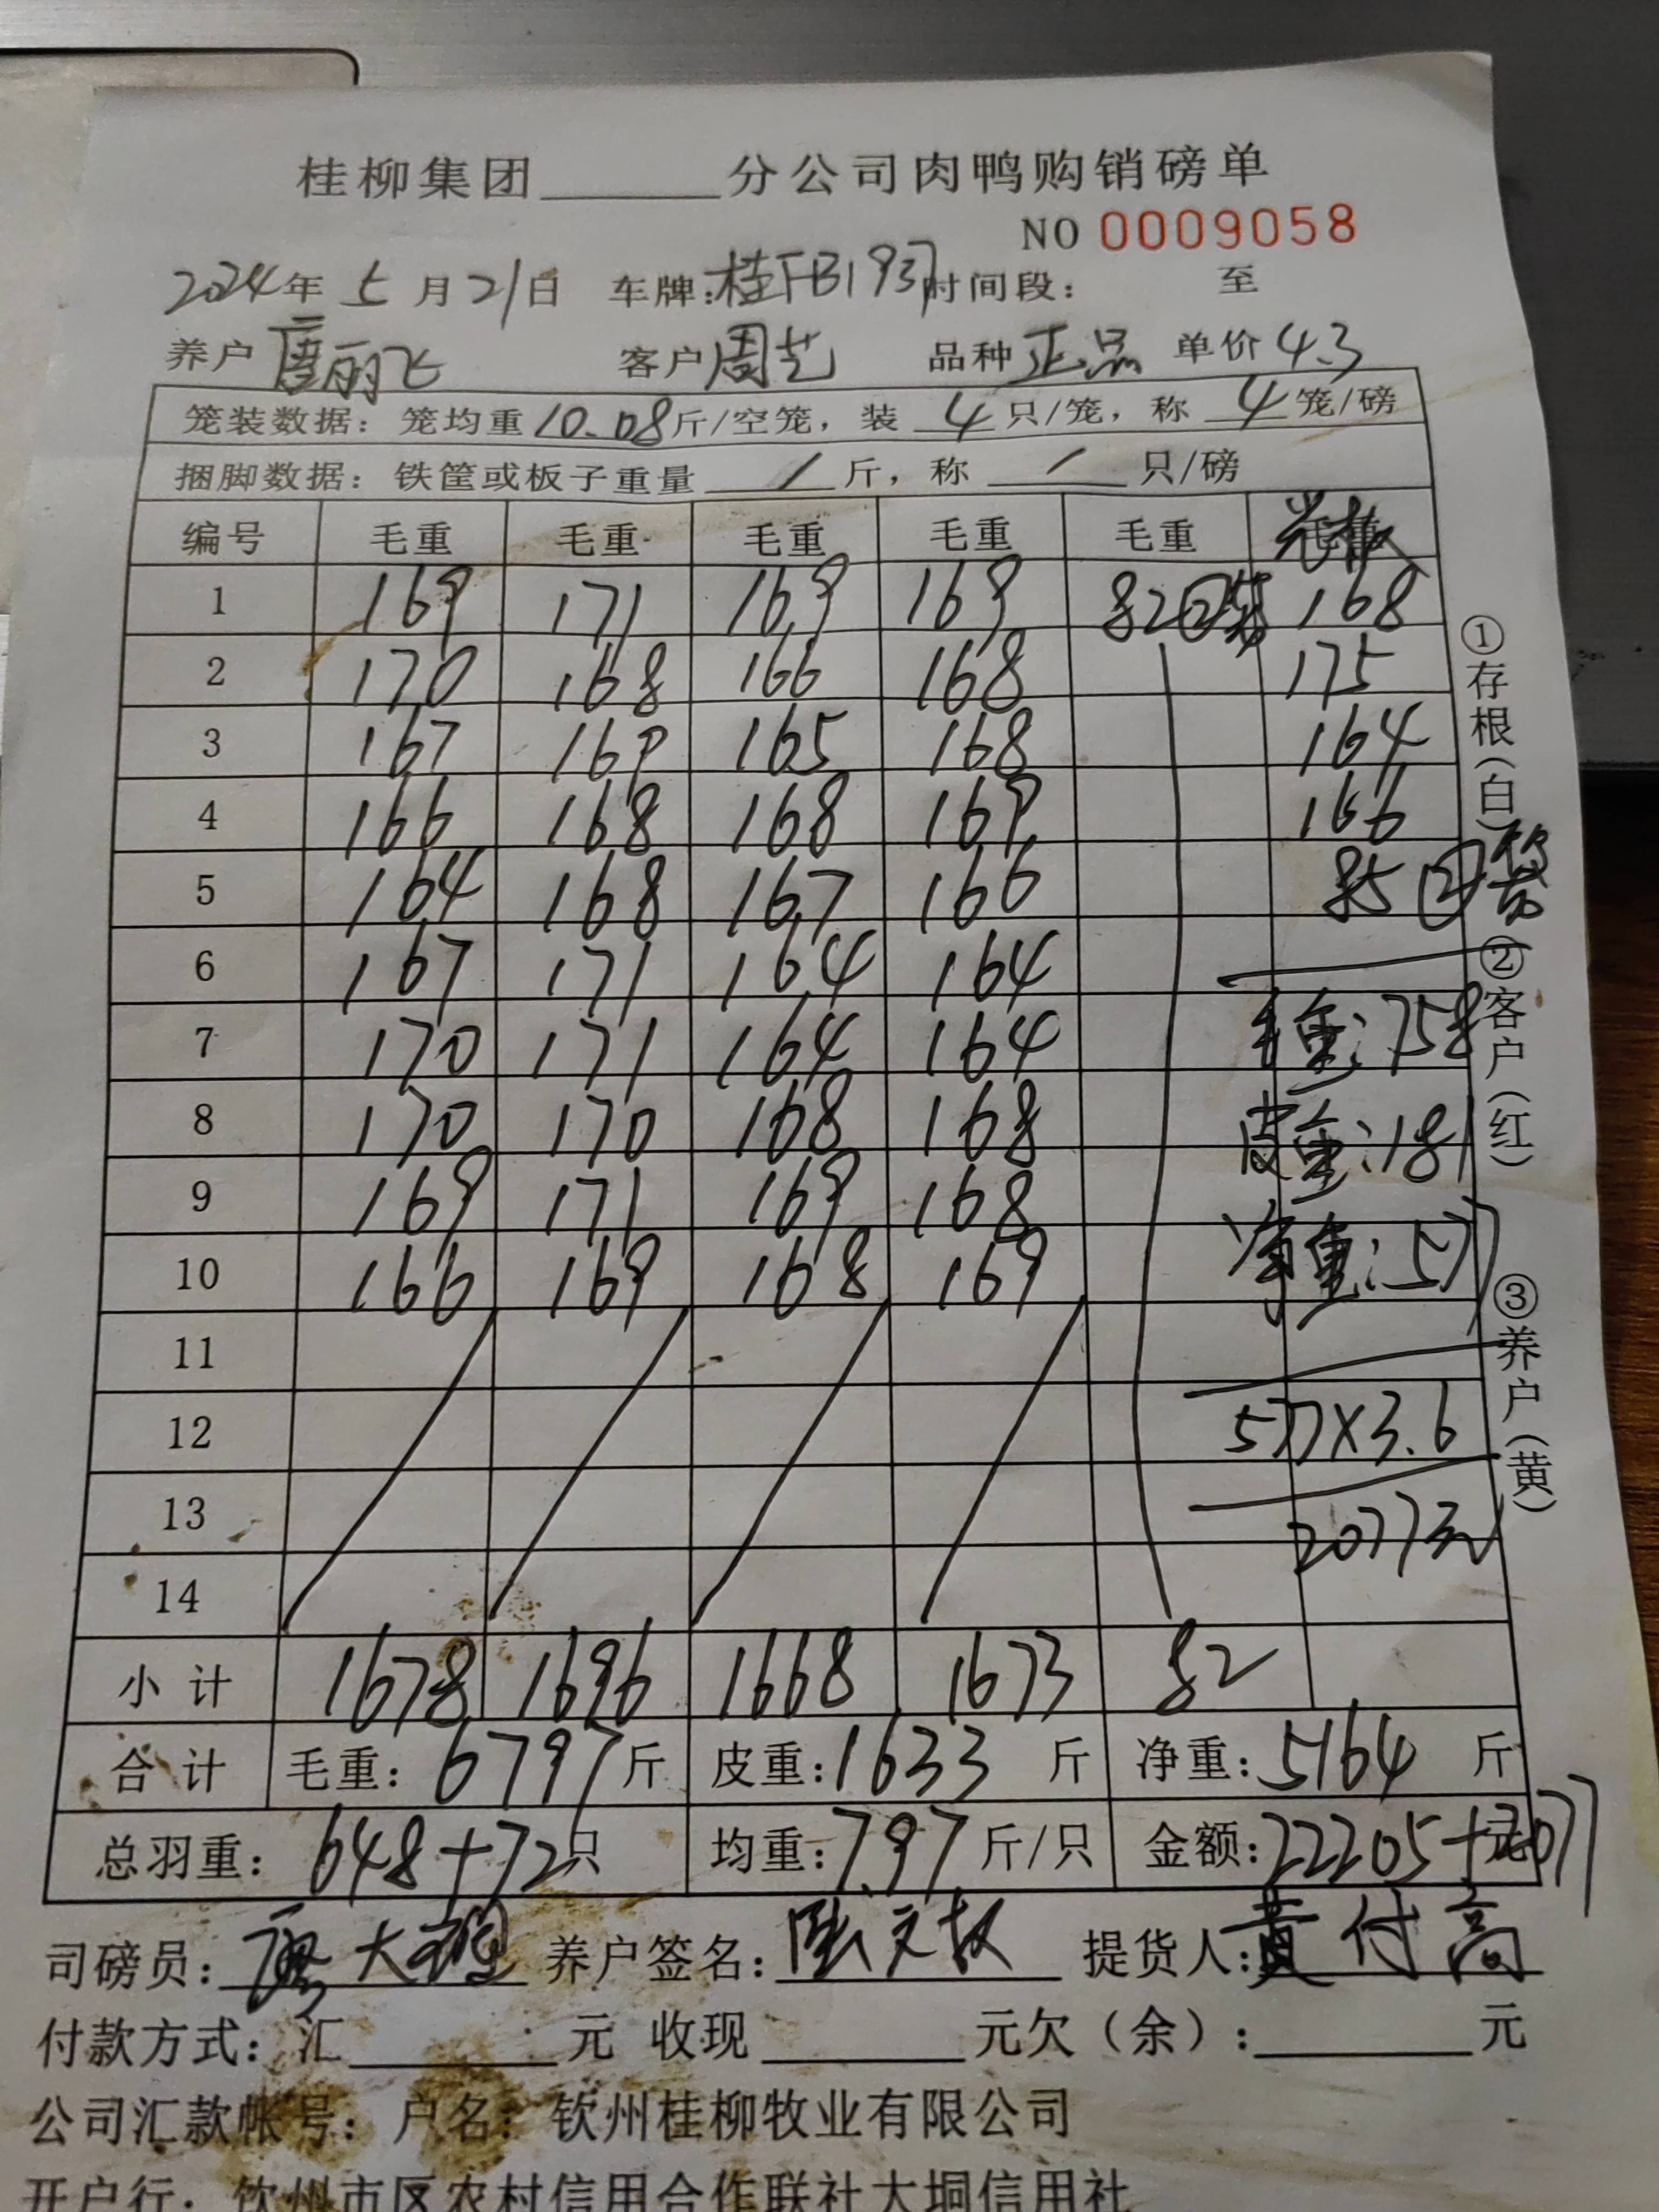 桂柳集团______分公司肉鸭购销磅单
NO 0009058
2024年 5 月 21日 车牌:桂FB1937 时间段: 至
养户 唐丽飞 客户 周艺 品种 正品 单价 4.3
笼装数据: 笼均重 10.08 斤/空笼, 装 4 只/笼, 称 4 笼/磅
捆脚数据: 铁筐或板子重量 / 斤, 称 / 只/磅
编号 毛重 毛重 毛重 毛重 毛重
1 169 171 169 169 82②笼 168
2 170 168 166 168 175
3 167 169 165 168 164
4 166 168 168 169 166
5 164 168 167 166 85②笼
6 167 171 164 164
7 170 171 164 164 毛重:758
8 170 170 168 168 皮重:181
9 169 171 169 168 净重:577
10 166 169 168 169
11
12 577×3.6
13 2077元
14
小计 1678 1696 1668 1673 82
合计 毛重: 6797 斤 皮重: 1633 斤 净重: 5164 斤
总羽重: 648+72 只 均重: 7.97 斤/只 金额: 22205+2077 元
司磅员: 大 养户签名: 提货人: 黄付高
付款方式: 汇______元 收现______元欠(余):______元
公司汇款帐号: 户名: 钦州桂柳牧业有限公司
开户行: 钦州市区农村信用合作联社大垌信用社
①存根(白)
②客户(红)
③养户(黄)